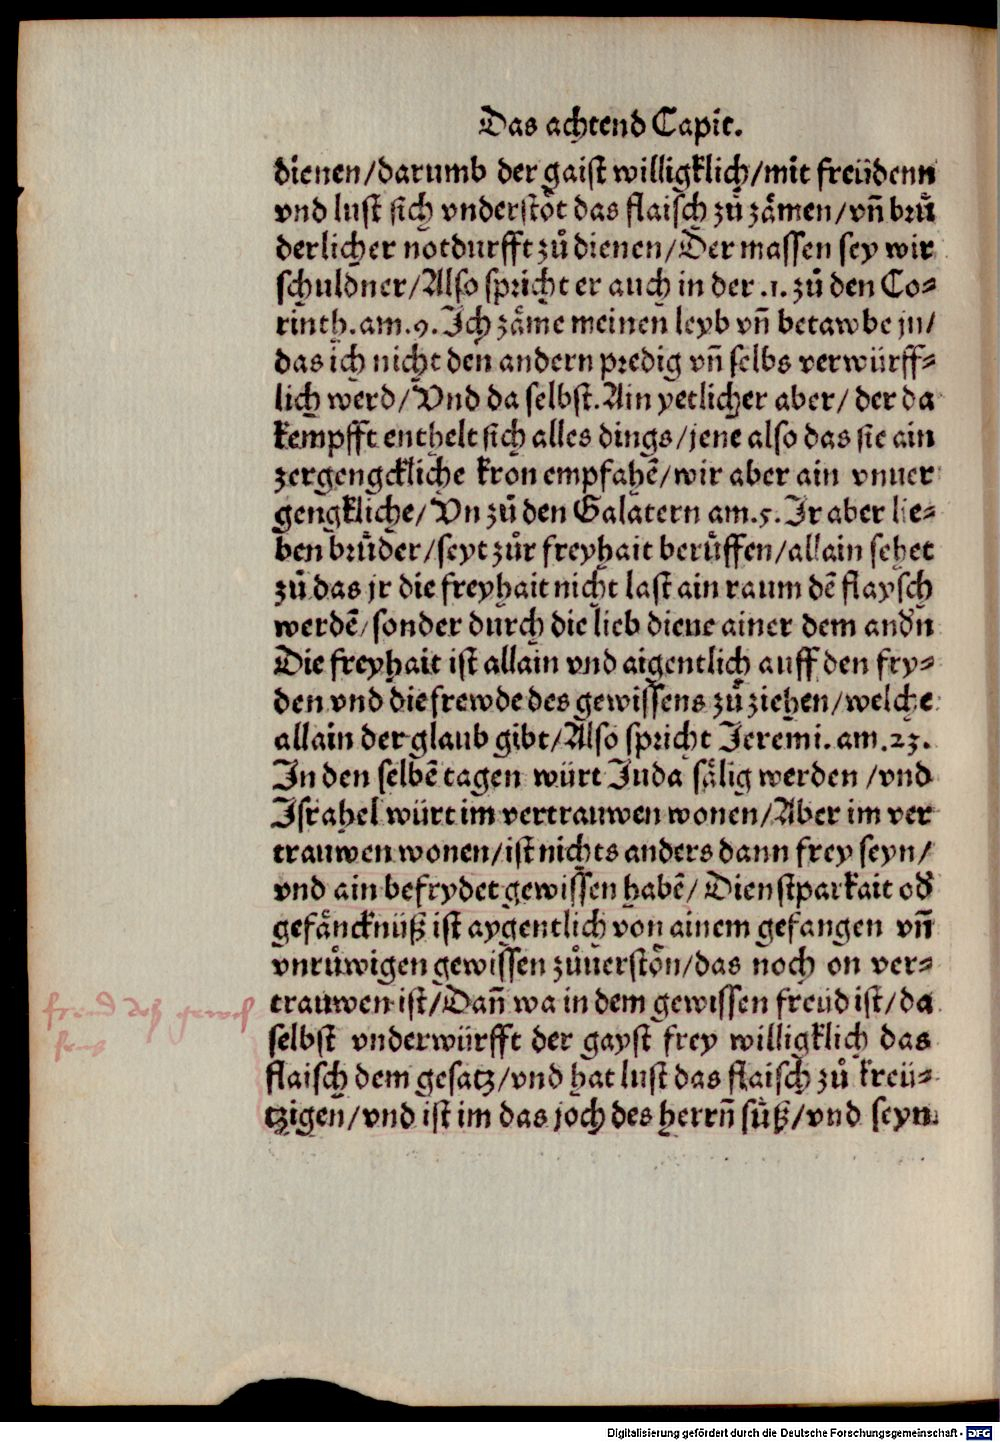 Das achtend Capit.
dienen/darumb der gaist willigklich/mit freüdenn
vnd lust sich vnderstöt das flaisch zů zämen/vñ brů
derlicher notdurfft zů dienen/Der massen sey wir
schuldner/Also spricht er auch in der .1. zů den Co-
rinth. am .9. Ich zäme meinen leyb vñ betawbe jn/
das ich nicht den andern predig vñ selbs verwürff-
lich werd/Vnd da selbst. Ain yetlicher aber/ der da
kempfft enthelt sich alles dings/jene also das sie ain
zergengckliche kron empfahẽ/wir aber ain vnuer
gengkliche/Vn zů den Galatern am .5. Ir aber lie-
ben brůder/seyt zůr freyhait berůffen/allain sehet
zů das jr die freyhait nicht last ain raum dẽ flaysch
werdẽ/sonder durch die lieb diene ainer dem andn̄
Die freyhait ist allain vnd aigentlich auff den fry-
den vnd die frewde des gewissens zů ziehen/welche
allain der glaub gibt/Also spricht Jeremi. am .23.
In den selbẽ tagen würt Juda sälig werden /vnd
Israhel würt im vertrauwen wonen/Aber im ver
trauwen wonen/ist nichts anders dann frey seyn/
vnd ain befrydet gewissen habẽ/ Dienstparkait od̕
gefäncknüß ist aygentlich von ainem gefangen vñ
vnrůwigen gewissen zůuerstön/das noch on ver-
trauwen ist/Dañ wa in dem gewissen freüd ist/da
selbst vnderwürfft der gayst frey willigklich das
flaisch dem gesatz/vnd hat lust das flaisch zů kreü-
tzigen/vnd ist im das joch des herrñ sůß/vnd seyn
freud deß gewis
sens
Digitalisierung gefördert durch die Deutsche Forschungsgemeinschaft - DFG